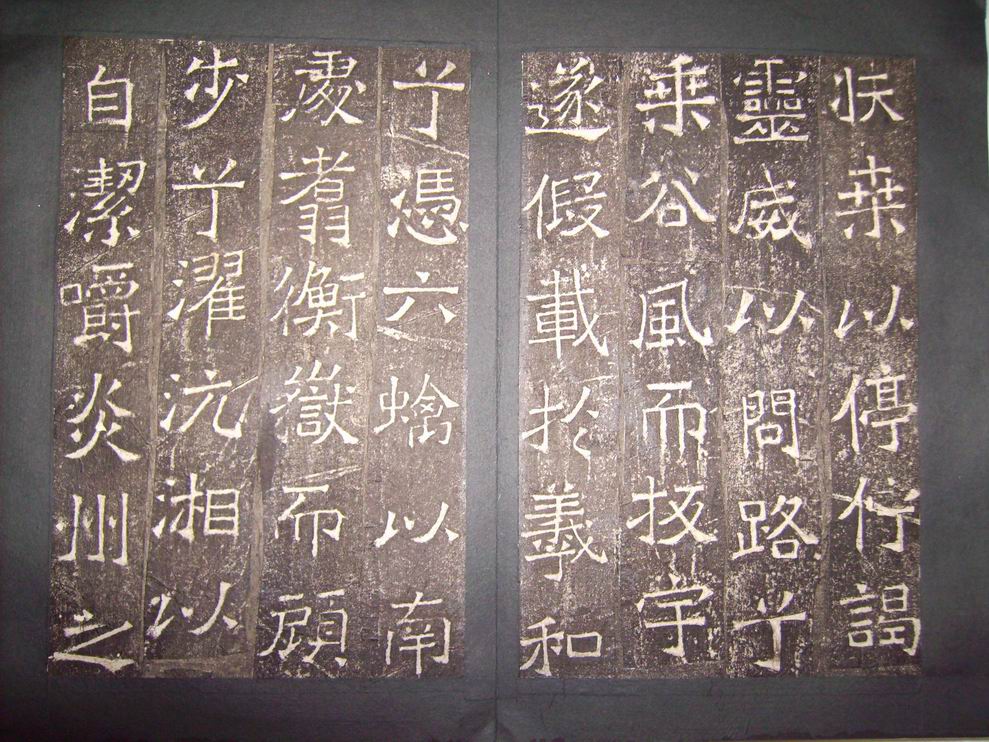 扶桒以停佇謁
靈威以問路兮
乘谷風而扳宇
遂假載於羲和
兮憑六螭以南
處翥衡嶽而顧
步兮濯沅湘以
自潔嚼炎州之